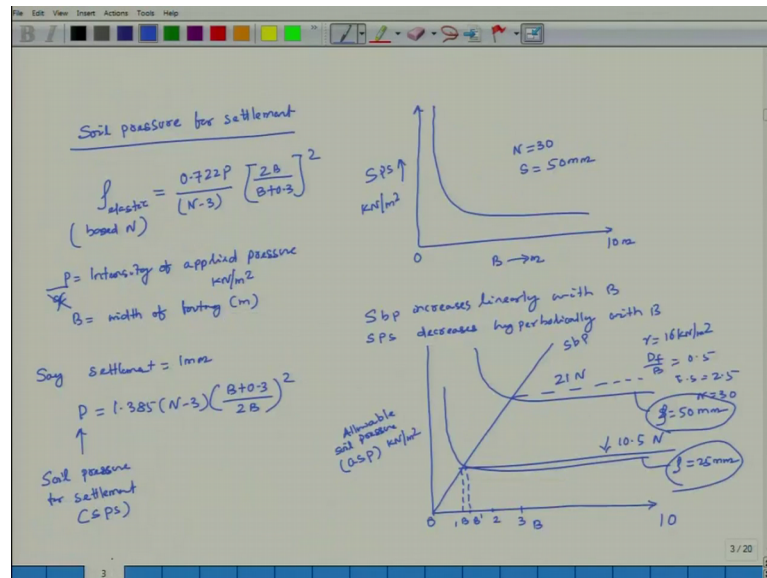 File Edit View Insert Actions Tools Help
B I
Soil poessure for settlement
ρelastic = 0.722P/(N-3) [2B/B+0.3]²
(based N)
P = Intensity of applied poessure
kN/m²
B = width of footing (m)
Say settlement = 1mm
P = 1.385(N-3)(B+0.3/2B)²
Soil poessure
for settlement
(SPS)
SPS
kN/m²
N=30
S = 50mm
0
B → m
10m
Sbp increases linearly with B
SPS decreases hyperbolically with B
Sbp
γ = 16kN/m²
Df/B = 0.5
= 2.5
N=30
21 N
ρ=50mm
Allowable
soil poessure
(asp) kN/m²
10.5 N
ρ=25mm
0 1 B B' 2 3 B 10
3/20
3